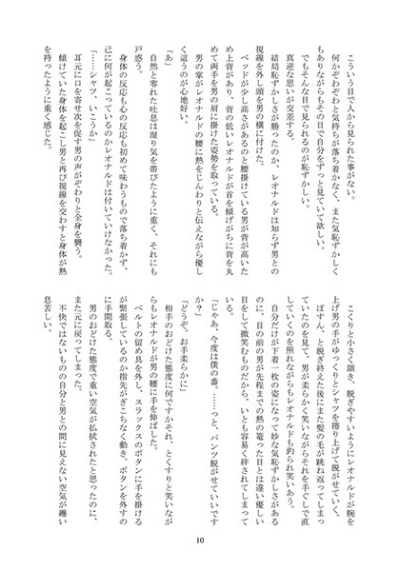 こういう目で人から見られた事がない。
何かぞわぞわと気持ちが落ち着かなく、また気恥ずかしく
もありながらもその目で自分をずっと見ていて欲しい。
でもそんな目で見られるのが恥ずかしい。
真逆な思いが交差する。
結局恥ずかしさが勝ったのか、レオナルドは知らず男との
視線を外し頭を男の横に付けた。
ベッドが少し高さがあるのと腰掛けている男が背が高いた
め上背があり、背の低いレオナルドが首を傾げがちに背を丸
めて両手を男の肩に掛けた姿勢を取っている。
男の掌がレオナルドの腰に熱をじんわりと伝えながら優し
く這うのが心地好い。
「あ」
自然と零れた吐息は湿り気を帯びたように重く、それにも
戸惑う。
身体の反応も心の反応も初めて味わうもので落ち着かず、
己に何が起こっているのかレオナルドは付いていけなかった。
「……シャツ、いこうか」
耳元に口を寄せ次を促す男の声がぞわりと全身を襲う。
傾けていた身体を起こし男と再び視線を交わすと身体が熱
を持ったように重く感じた。
こくりと小さく頷き、脱ぎやすいようにレオナルドが腕を
上げ男の手がゆっくりとシャツを捲り上げて脱がせていく。
ぱすん、と脱ぎ終えた後にまた髪の毛が跳ね返ってしまっ
ていたのを見て、男が柔らかく笑いながらそれを手ぐしで直
していくのを照れながらもレオナルドも釣られ笑いあう。
自分だけが下着一枚の姿になって妙な気恥ずかしさがある
のに、目の前の男が先程までの熱の篭った目とは違い優しい
目をして微笑むものだから、いとも容易く絆されてしまって
いる。
「じゃあ、今度は僕の番。……っと、パンツ脱がせていいです
か？」
「どうぞ。お手柔らかに」
相手のおどけた態度に何ですかそれ、とくすりと笑いなが
らもレオナルドが男の腰に手を伸ばした。
ベルトの留め具を外し、スラックスのボタンに手を掛ける
が緊張しているのか指先がぎこちなく動き、ボタンを外すの
に手間取る。
男のおどけた態度で重い空気が払拭されたと思ったのに、
また元に戻ってしまった。
不快ではないものの自分と男との間に見えない空気が纏い
息苦しい。
10